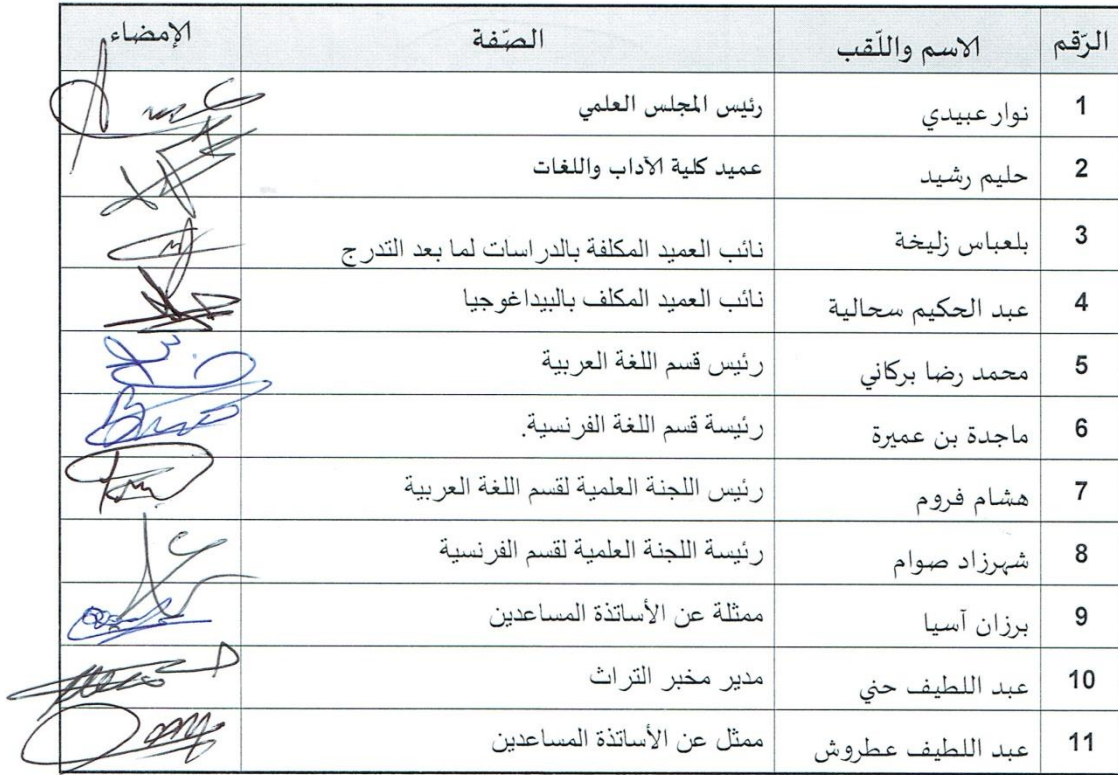 الرّقم الاسم واللّقب الصّفة الإمضاء
1 نوار عبيدي رئيس المجلس العلمي
2 حليم رشيد عميد كلية الآداب واللغات
3 بلعباس زليخة نائب العميد المكلفة بالدراسات لما بعد التدرج
4 عبد الحكيم سحالية نائب العميد المكلف بالبيداغوجيا
5 محمد رضا بركاني رئيس قسم اللغة العربية
6 ماجدة بن عميرة رئيسة قسم اللغة الفرنسية.
7 هشام فروم رئيس اللجنة العلمية لقسم اللغة العربية
8 شهرزاد صوام رئيسة اللجنة العلمية لقسم الفرنسية
9 برزان آسيا ممثلة عن الأساتذة المساعدين
10 عبد اللطيف حني مدير مخبر التراث
11 عبد اللطيف عطروش ممثل عن الأساتذة المساعدين